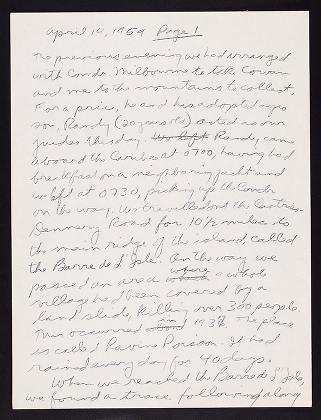 April 14, 1959 Page 1
The previous evening we had arranged
with Condr Melbourne to take Cowan
and me to the mountains to collect.
For a price, he and his adopted negro
son, Randy (20 years old) acted as our
guides this day. We left Randy came
aboard the Caribee at 0700, having had
breakfast on a neighboring yacht and
we left at 0730, picking up the Condr
on the way. We travelled out the Castries-
Dennery Road for 10 1/2 miles to
the main ridge of the island, called
the Barre de l'Isle. On the way we
passed an area which where a whole
village had been covered by a
land slide, killing over 300 people.
This occurred in 1938. The place
is called Ravine Poisson. It had
rained every day for 40 days.
When we reached the Barre de l'Isle,
we found a trace following along